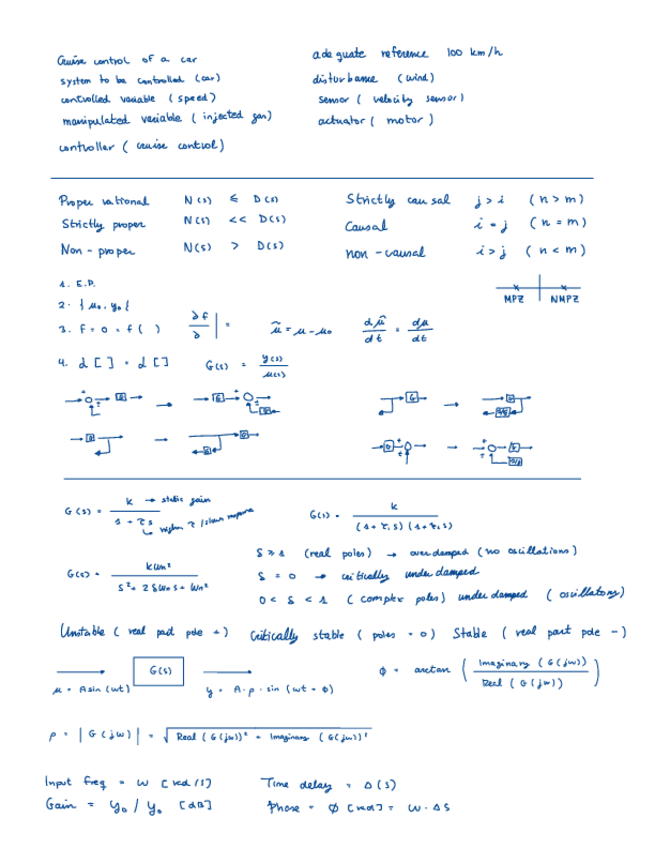 Cruise control of a car
system to be controlled (car)
controlled variable (speed)
manipulated variable (injected gas)
controller (cruise control)
adeguate reference 100 km/h
disturbance (wind)
sensor (velocity sensor)
actuator (motor)
Proper rational N(s) ≤ D(s)
Strictly proper N(s) << D(s)
Non-proper N(s) > D(s)
Strictly causal j>i (n>m)
Causal i=j (n=m)
non-causal i>j (n<m)
MPZ NMPZ
1. E.P.
2. {μ₀, y₀}
3. f=0=f( ) ∂f/∂ | = μ̃=μ-μ₀ dμ̃/dt = dμ/dt
4. L[ ] = L[ ] G(s) = y(s)/μ(s)
G(s) = k/(1+τs) → static gain
G(s) = k/((1+τ₁s)(1+τ₂s))
higher τ/slower response
G(s) = kωn²/(s²+2ζωns+ωn²)
ζ≥1 (real poles) → overdamped (no oscillations)
ζ=0 → critically underdamped
0<ζ<1 (complex poles) underdamped (oscillatory)
Unstable (real part pole +) Critically stable (poles = 0) Stable (real part pole -)
G(s)
μ = Asin(wt) y = A·ρ·sin(wt+ϕ)
ϕ = arctan (Imaginary (G(jw))/Real (G(jw)))
ρ = |G(jw)| = √Real (G(jw))² + Imaginary (G(jw))²
Input freq = w [rad/s] Time delay = Δ(s)
Gain = y₀/y₀ [dB] Phase = ϕ [rad] = w·Δs